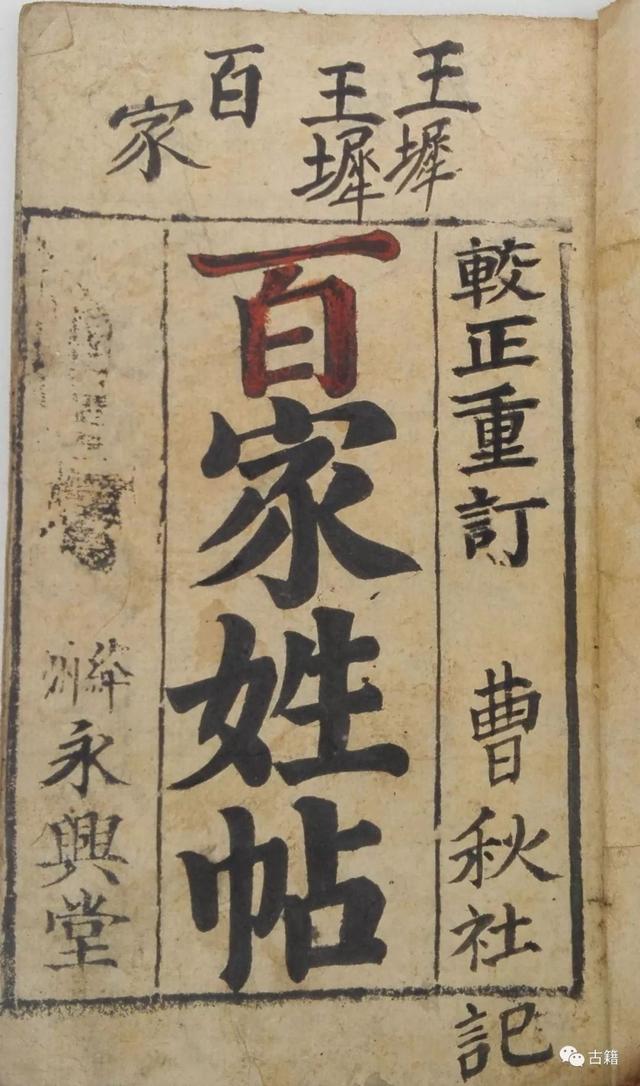 王墀
王墀
百
家
較正重訂
曹秋社記
百家姓帖
絳州
永興堂
古籍